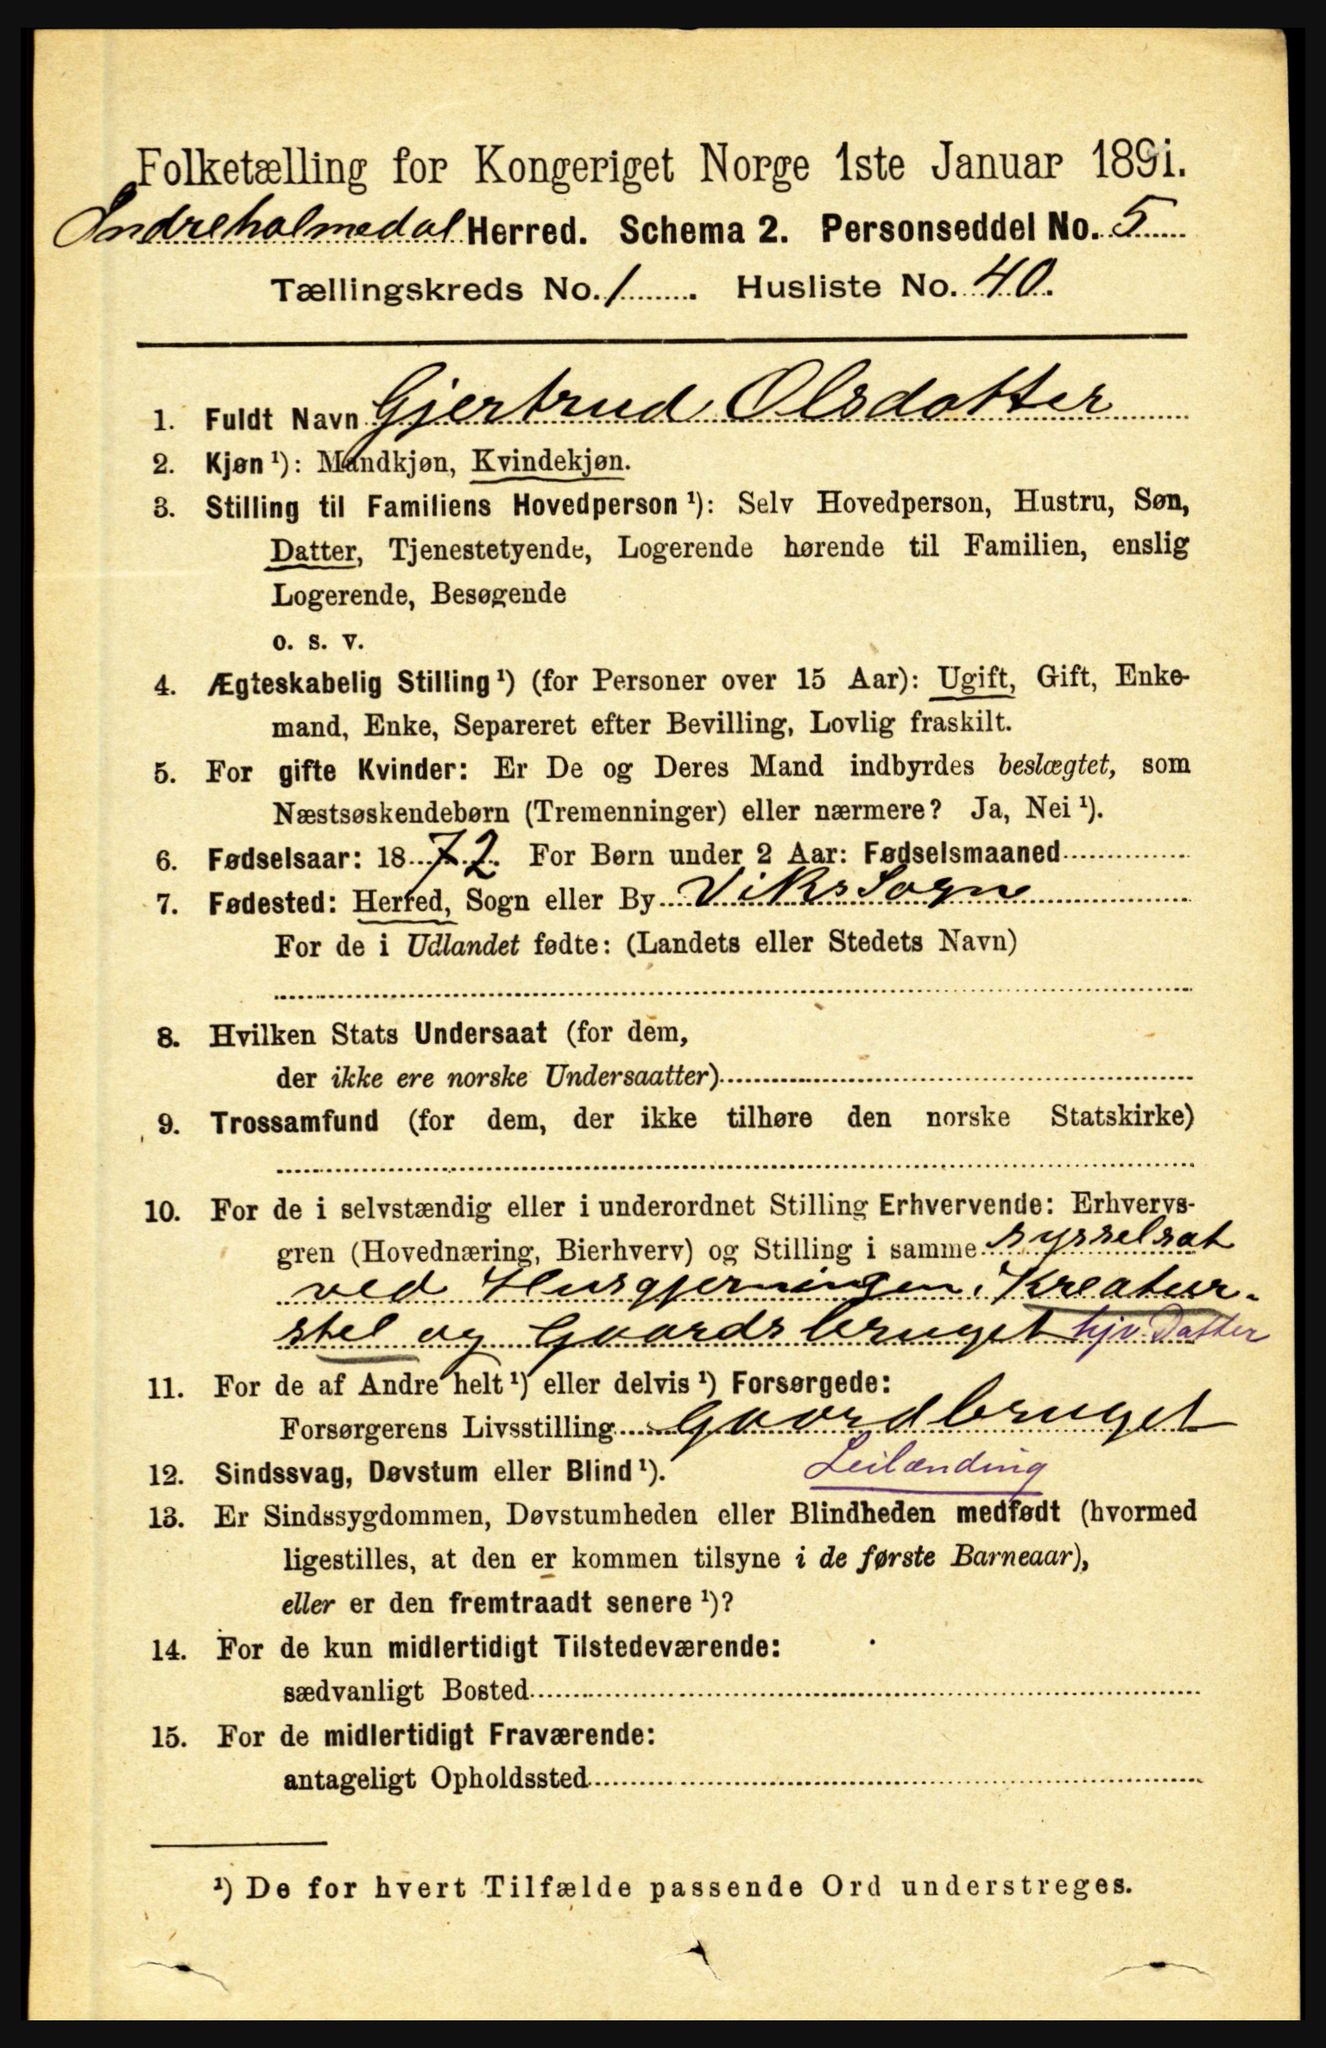 Folketælling for Kongeriget Norge 1ste Januar 1891.
Indreholmedal Herred. Schema 2. Personseddel No. 5
Tællingskreds No. 1. Husliste No. 40.
1. Fuldt Navn Gjertrud Olsdatter
2. Kjøn ¹): Mandkjøn, Kvindekjøn.
3. Stilling til Familiens Hovedperson ¹): Selv Hovedperson, Hustru, Søn,
Datter, Tjenestetyende, Logerende hørende til Familien, enslig
Logerende, Besøgende
o. s. v.
4. Ægteskabelig Stilling ¹) (for Personer over 15 Aar): Ugift, Gift, Enke-
mand, Enke, Separeret efter Bevilling, Lovlig fraskilt.
5. For gifte Kvinder: Er De og Deres Mand indbyrdes beslægtet, som
Næstsøskendebørn (Tremenninger) eller nærmere? Ja, Nei ¹).
6. Fødselsaar: 1872. For Børn under 2 Aar: Fødselsmaaned
7. Fødested: Herred, Sogn eller By Viks Sogne
For de i Udlandet fødte: (Landets eller Stedets Navn)
8. Hvilken Stats Undersaat (for dem,
der ikke ere norske Undersaatter)
9. Trossamfund (for dem, der ikke tilhøre den norske Statskirke)
10. For de i selvstændig eller i underordnet Stilling Erhvervende: Erhvervs-
gren (Hovednæring, Bierhverv) og Stilling i samme sysselsat
ved Husgjerningen, Kreatur-
stel og Gaardsbruget hjv. Datter
11. For de af Andre helt ¹) eller delvis ¹) Forsørgede:
Forsørgerens Livsstilling Gaardbruget
12. Sindssvag, Døvstum eller Blind ¹). Leilænding
13. Er Sindssygdommen, Døvstumheden eller Blindheden medfødt (hvormed
ligestilles, at den er kommen tilsyne i de første Barneaar),
eller er den fremtraadt senere ¹)?
14. For de kun midlertidigt Tilstedeværende:
sædvanligt Bosted
15. For de midlertidigt Fraværende:
antageligt Opholdssted
¹) De for hvert Tilfælde passende Ord understreges.